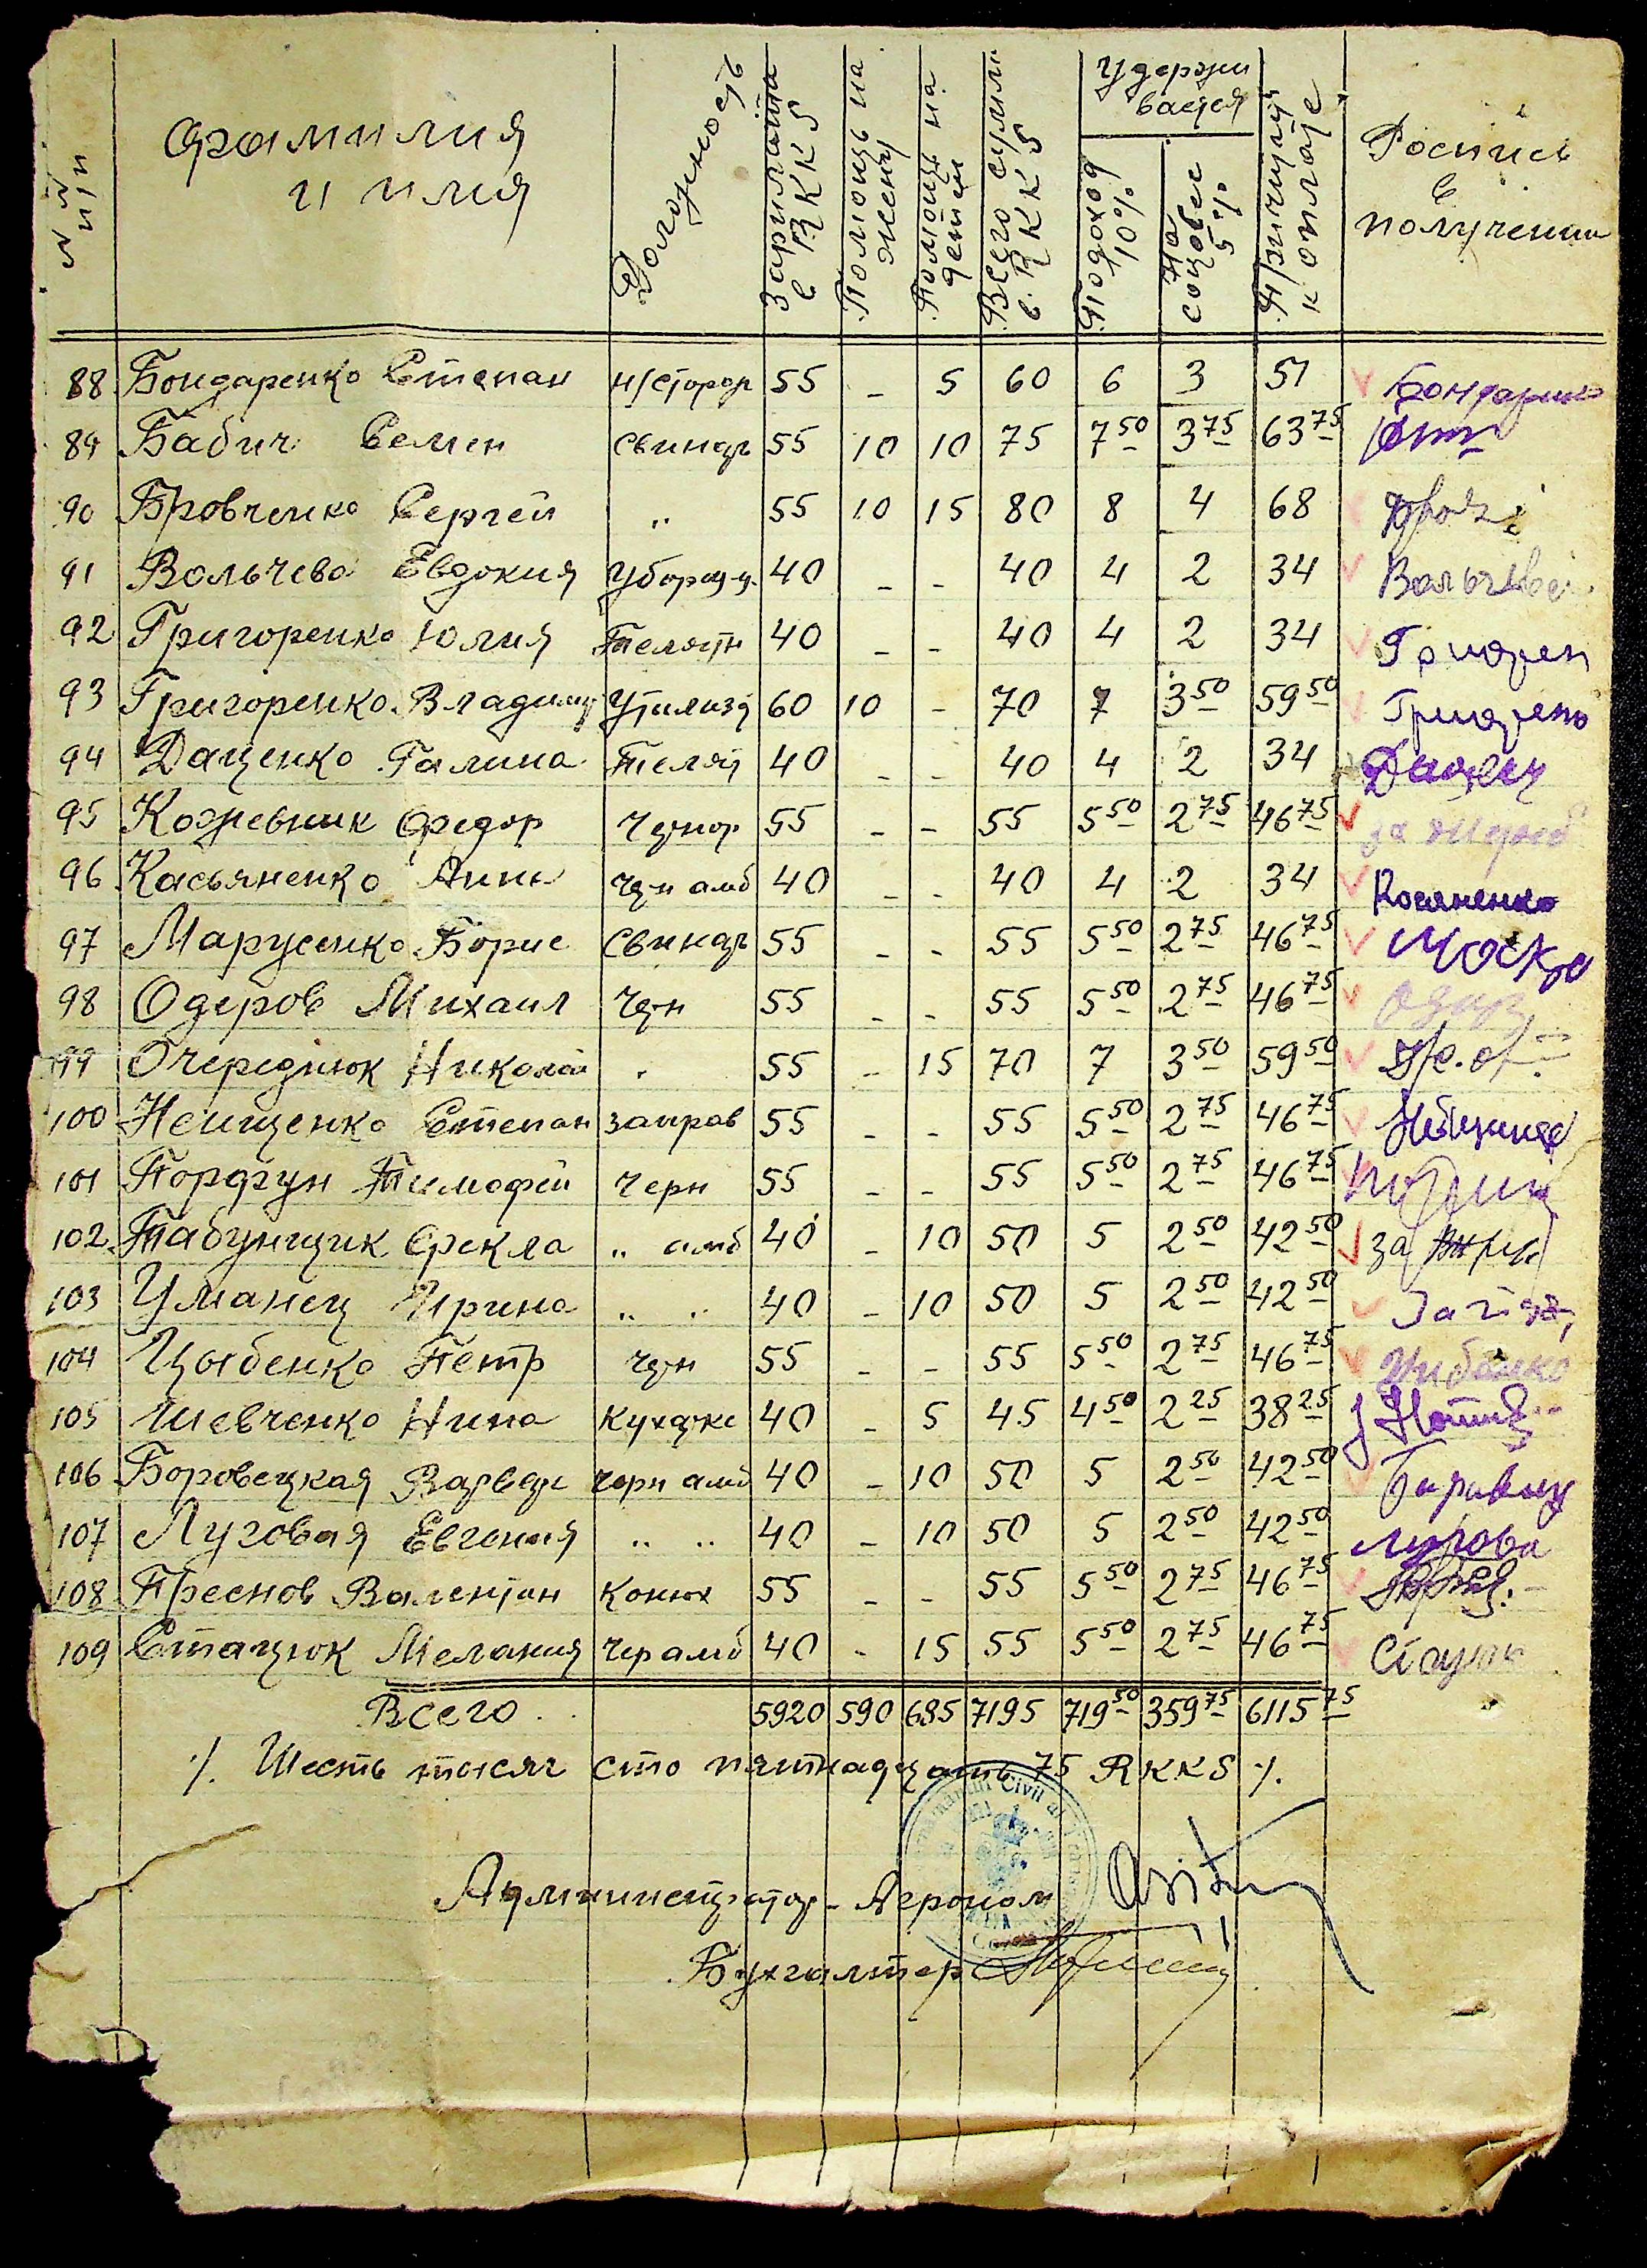 №№ п/п | Фамилия и имя | Должность | Зарплата в RKKS | Помощь на жену | Помощь на детей | Всего сумм. в RKKS | Удерживается | Причит. к оплате | Роспись в получении
Подоход 10% | на соцобес 5%
88 Бондаренко Степан н/сторож 55 - 5 60 6 3 51
89 Бабич Семен свинарь 55 10 10 75 7 50 3 75 63 75
90 Бровченко Сергей " 55 10 15 80 8 4 68
91 Вольчева Евдокия уборщ-ц. 40 - - 40 4 2 34 Вольчева
92 Григоренко Юлия Телятн 40 - - 40 4 2 34
93 Григоренко Владимир Утилиз 60 10 - 70 7 3 50 59 50
94 Даценко Галина Теля 40 - - 40 4 2 34
95 Кожевник Федор Чернор 55 - - 55 5 50 2 75 46 75
96 Касьяненко Анна черн амб 40 - - 40 4 2 34 Косяненко
97 Марусенко Борис Свинарь 55 - - 55 5 50 2 75 46 75
98 Одеров Михаил Черн 55 - - 55 5 50 2 75 46 75
99 Очереднюк Николай " 55 - 15 70 7 3 50 59 50
100 Неищенко Степан заправ 55 - - 55 5 50 2 75 46 75
101 Порфгун Тимофей Черн 55 - - 55 5 50 2 75 46 75
102 Табунщик Фекла " амб 40 - 10 50 5 2 50 42 50 за
103 Уманец Ирина " " 40 - 10 50 5 2 50 42 50
104 Цыбенко Петр черн 55 - - 55 5 50 2 75 46 75 Цибенко
105 Шевченко Нина 40 - 5 45 4 50 2 25 38 25
106 Боровецкая Варвар черн амб 40 - 10 50 5 2 50 42 50
107 Луговая Евгения " " 40 - 10 50 5 2 50 42 50 Лугова
108 Преснов Валентин Конюх 55 - - 55 5 50 2 75 46 75
109 Стацюк Мелания Чер амб 40 - 15 55 5 50 2 75 46 75
Всего 5920 590 685 7195 719 50 359 75 6115 75
·/. Шесть тысяч сто пятнадцать 75 RKKS ·/.
Civil al
Администратор - Агроном
Бухгалтер